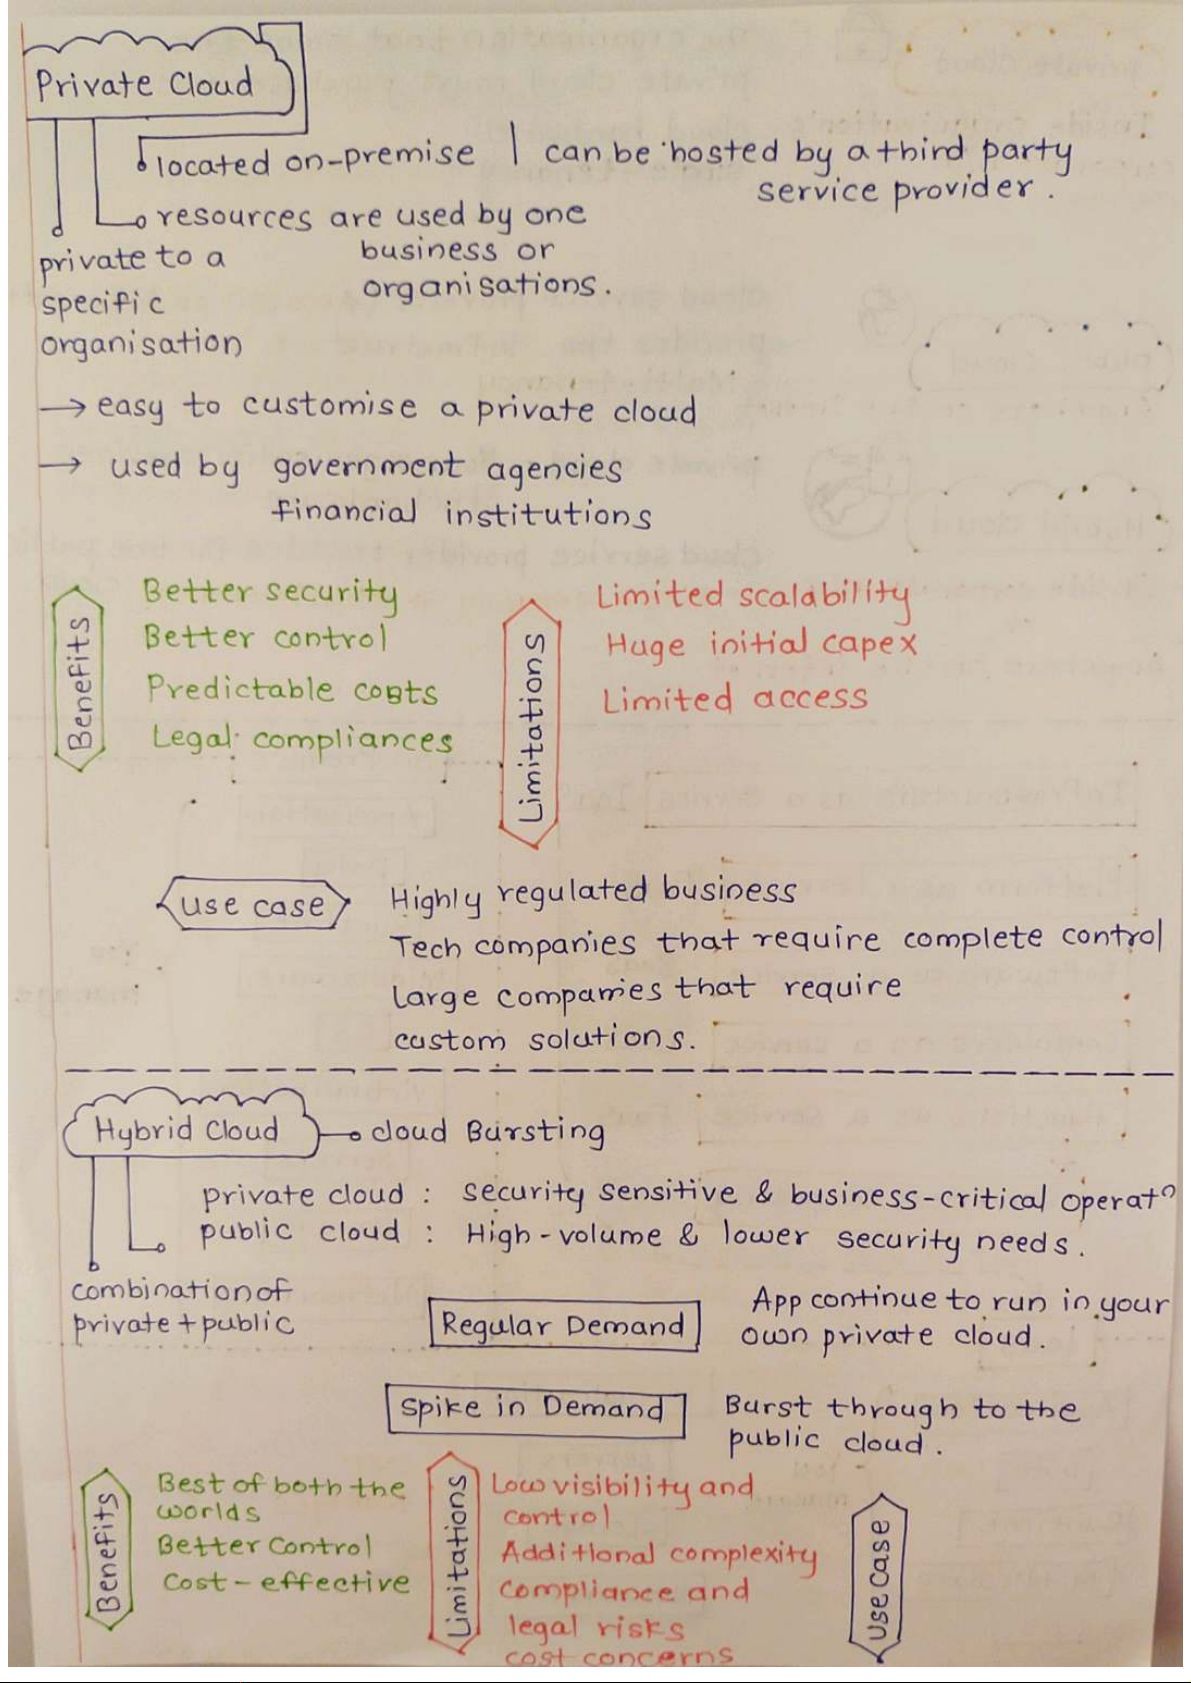 Private Cloud
located on-premise | can be hosted by a third party
service provider.
resources are used by one
business or
organisations.
private to a
specific
organisation
→ easy to customise a private cloud
→ used by government agencies
financial institutions
Benefits
Better security
Better control
Predictable costs
Legal compliances
Limitations
Limited scalability
Huge initial capex
Limited access
use case
Highly regulated business
Tech companies that require complete control
Large companies that require
custom solutions.
Hybrid Cloud
cloud Bursting
private cloud : security sensitive & business-critical operatⁿ
public cloud : High-volume & lower security needs.
combination of
private + public
Regular Demand
App continue to run in your
own private cloud.
Spike in Demand
Burst through to the
public cloud.
Benefits
Best of both the
worlds
Better Control
Cost-effective
Limitations
Low visibility and
control
Additional complexity
compliance and
legal risks
cost concerns
Use Case